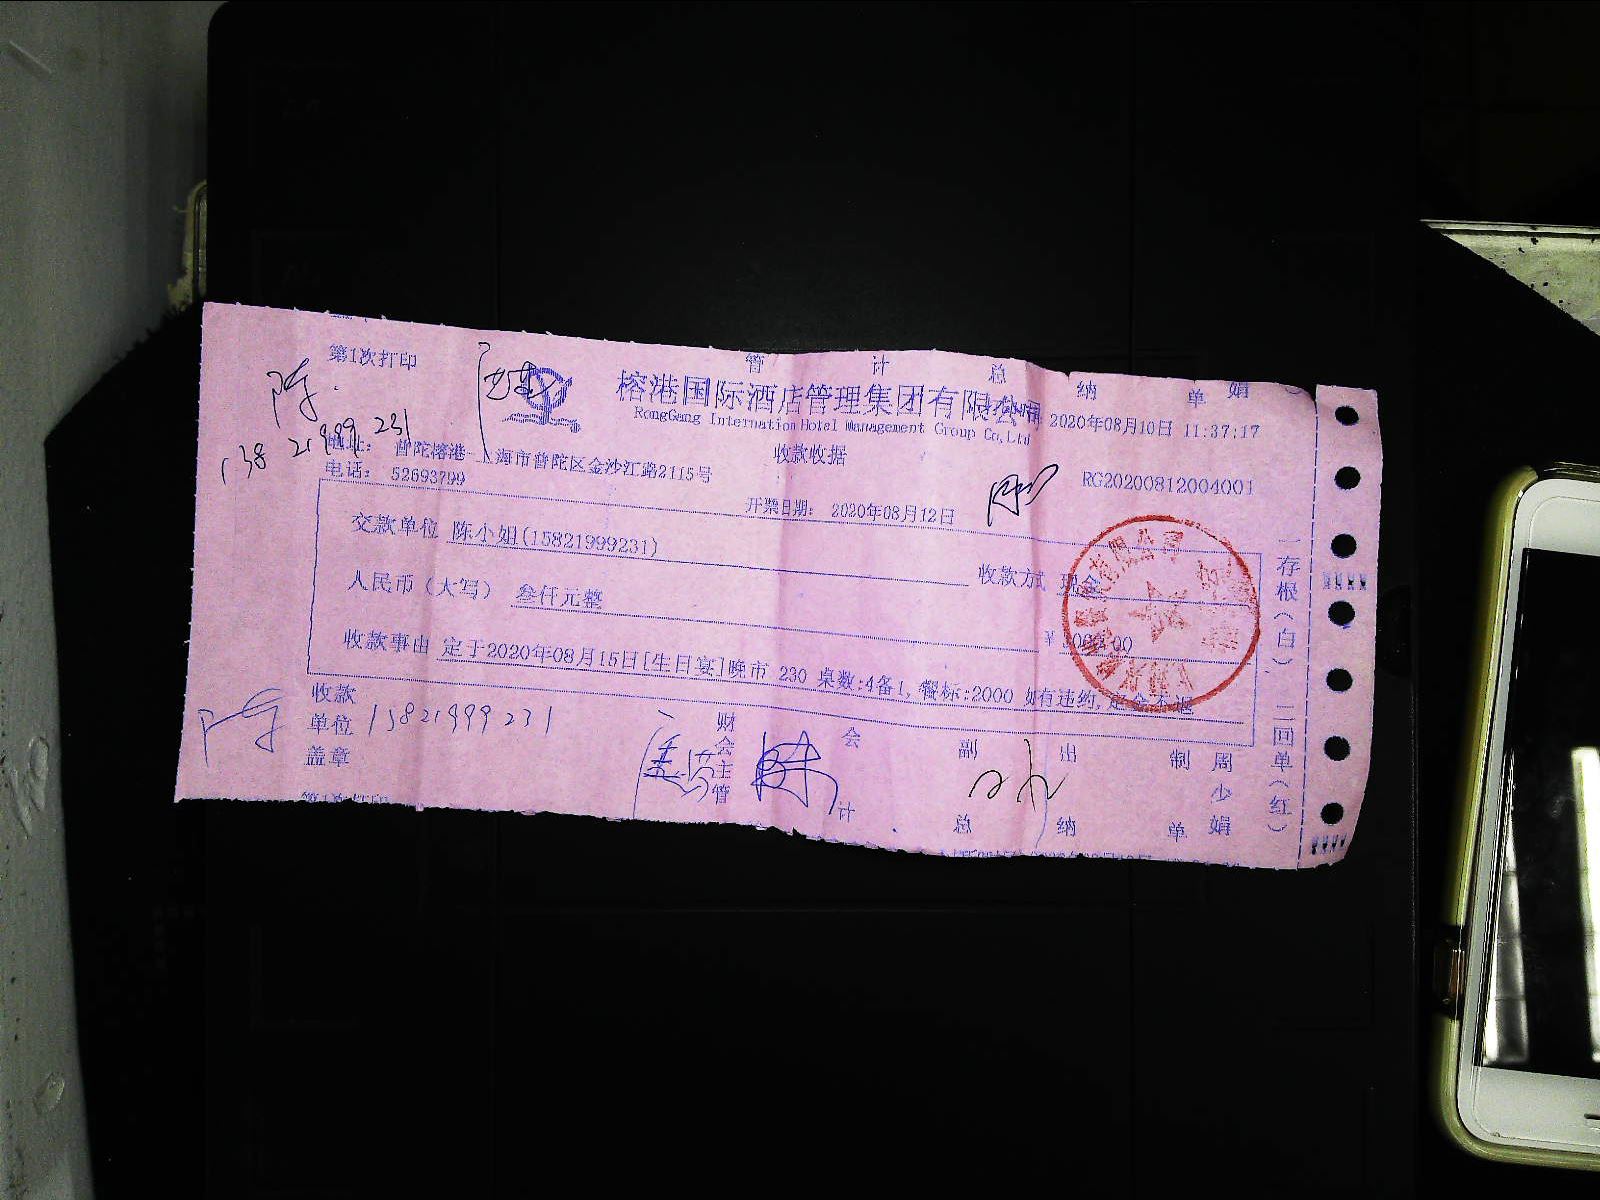 第1次打印
管 计 总 纳 单 娟
榕港国际酒店管理集团有限公司
RongGang Internation Hotel Management Group Co,Ltd
2020年08月10日 11:37:17
地址: 普陀榕港 海市普陀区金沙江路2115号
收款收据
电话: 52693799
RG20200812004001
开票日期: 2020年08月12日
交款单位 陈小姐(15821999231)
收款方式 现金
人民币(大写) 叁仟元整
收款事由 定于2020年08月15日[生日宴]晚市 230 桌数:4备1,餐标:2000 如有违约,定金不退
收款单位盖章
15821999231
财会主管
会计
副总
出纳
制单
周少娟
一存根(白) 二回单(红)